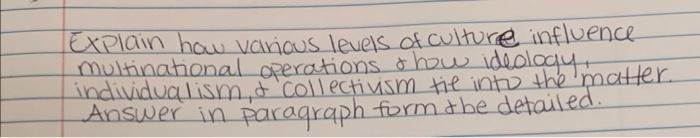 Explain how various levels of culture influence
multinational operations & how ideology,
individualism, & collectivism tie into the matter.
Answer in paragraph form & be detailed.